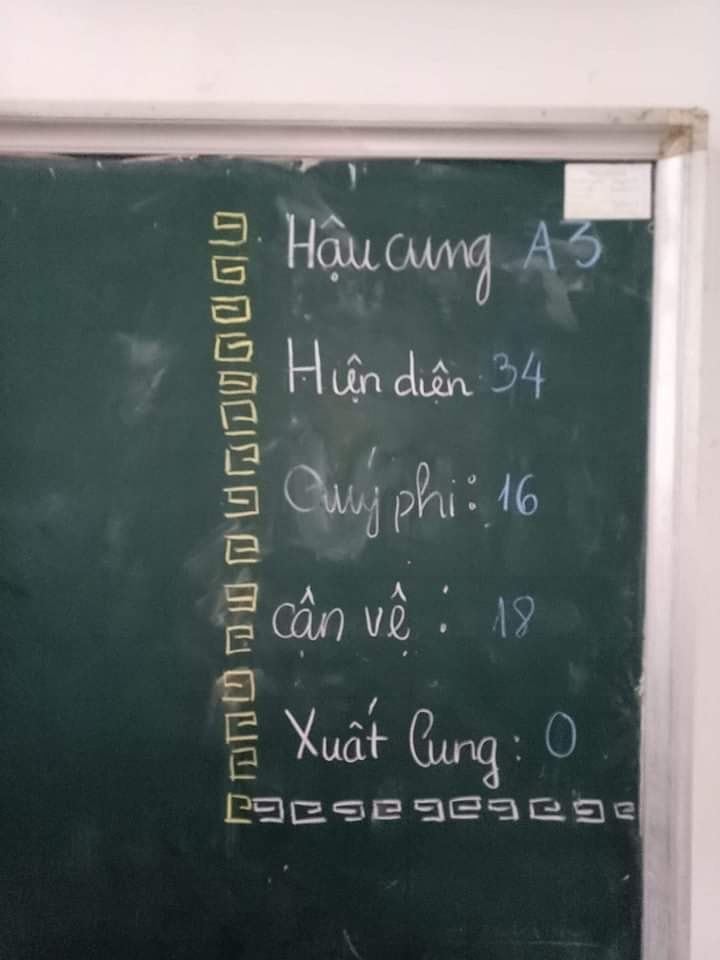 Hậu cung A3
Hiện diện: 34
Quý phi: 16
cận vệ: 18
Xuất Cung: 0